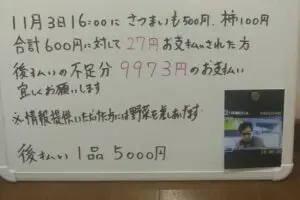 11月3日16:00に さつまいも500円、柿100円
合計600円に対して 27円お支払いされた方
後払いの不足分 9973円のお支払い
宜しくお願いします
※情報提供いただいた方には野菜を差しあげます
後払い 1品 5000円